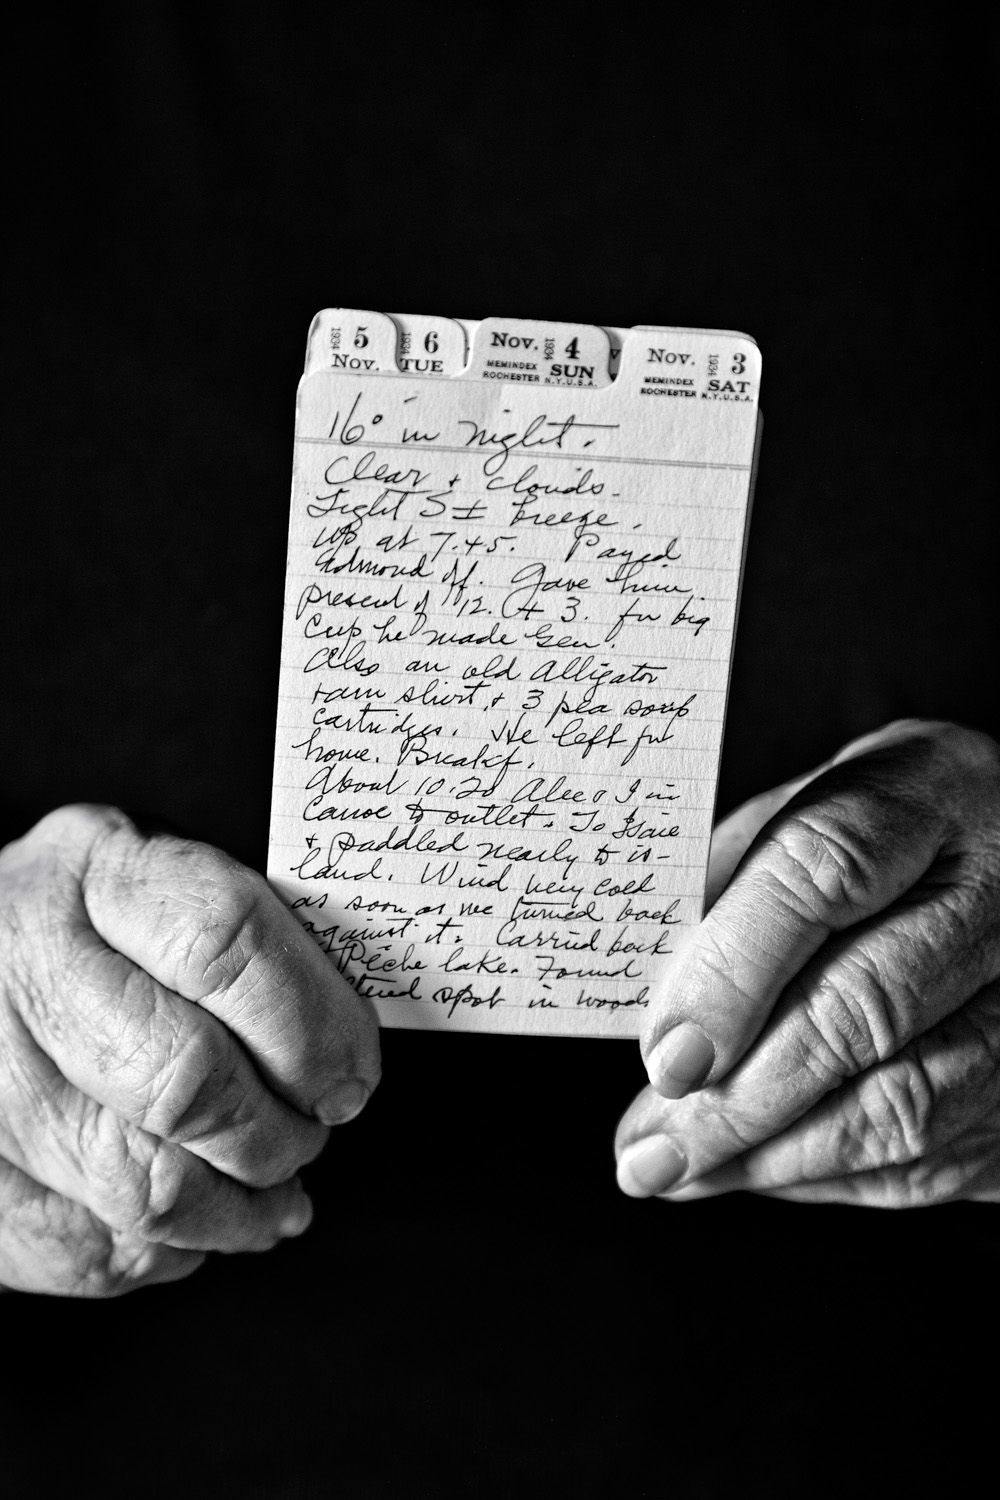 1934 5 Nov.
1934 6 TUE
Nov. 1934 4 SUN
MEMINDEX ROCHESTER N.Y.U.S.A.
Nov. 1934 3 SAT
MEMINDEX ROCHESTER N.Y.U.S.A.
16° in night.
Clear + clouds.
Light S ± breeze.
Up at 7.45. Payed
Edmond off. Gave him
present of 12. + 3. for big
cup he made Gen.
Also an old Alligator
rain shirt, + 3 pea soup
cartridges. He left for
home. Breakf.
About 10.20 Alec & I in
Canoe to outlet. To
+ paddled nearly to is-
land. Wind very cold
as soon as we turned back
against it. Carried back
Pêche lake. Found
spot in woods